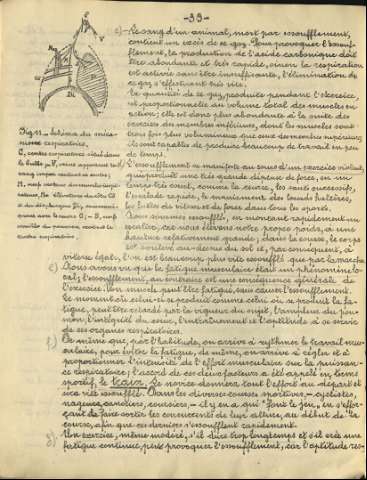 -39-
c)- Le sang d'un animal, mort par essoufflement,
contient un excès de ce gaz. Pour provoquer l'essouf-
flement, la production de l'acide carbonique doit
être abondante et très rapide, sinon la respiration
est activée sans être insuffisante, l'élimination du
gaz s'effectuant très vite.
La quantité de ce gaz, produite pendant l'exercice,
est proportionnelle au volume total des muscles en
action; elle est donc plus abondante à la suite des
exercices des membres inférieurs, dont les muscles sont
trois fois plus volumineux que ceux des membres supérieurs;
ils sont capables de produire beaucoup de travail en peu
de temps.
L'essoufflement se manifeste au cours d'un exercice violent,
qui produit une très grande dépense de forces, en un
temps très court, comme la course, les sauts successifs,
l'escalade rapide, le maniement des lourds haltères,
la lutte de vitesse et de force dans tous les sports.
Nous sommes essoufflé, en montant rapidement un
escalier, car nous élevons notre propre poids, à une
hauteur relativement grande; dans la course, le corps
est soulevé au-dessus du sol et, par conséquent, à
Fig. 11 - Schéma du méca-
nisme respiratoire.
vitesse égale, l'on est beaucoup plus vite essoufflé que par la marche
e) Nous avons vu que la fatigue musculaire était un phénomène lo-
cal; l'essoufflement, au contraire est une conséquence générale de
l'exercice. Un muscle peut être fatigué, sans causer l'essoufflement.
Le moment où celui-ci se produit comme celui où se produit la fa-
tigue, peut être retardé par la vigueur du sujet, l'ampleur du pou-
mon, l'intégrité du cœur, l'entraînement et l'aptitude à se servir
de ses organes respiratoires.
f) De même que, par l'habitude, on arrive à rythmer le travail mus-
culaire, pour éviter la fatigue, de même, on arrive à régler et à
proportionner l'intensité de l'effort musculaire sur la puissan-
ce respiratoire; l'accord de ces deux facteurs a été appelé en terme
sportif, le train. Le novice donnera tout l'effort au départ et
sera vite essoufflé. Dans les diverses courses sportives - cyclistes,
nageurs, canotiers, coureurs, - il y en a qui "font le jeu", en s'effor-
çant de faire sortir les concurrents de leur allure, au début de la
course, afin que ces derniers s'essoufflent rapidement.
g) Un exercice, même modéré, s'il dure trop longtemps et s'il crée une
fatigue continue, peut provoquer l'essoufflement, car l'aptitude res-